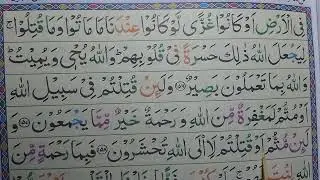 فِى الْاَرْضِ اَوْ كَانُوْا غُزًّى لَّوْ كَانُوْا عِنْدَنَا مَا مَاتُوْا وَمَا قُتِلُوْا ۚ
لِيَجْعَلَ اللّٰهُ ذٰلِكَ حَسْرَةً فِىْ قُلُوْبِهِمْ ؕ وَاللّٰهُ يُحْىٖ وَيُمِيْتُ ؕ
وَاللّٰهُ بِمَا تَعْمَلُوْنَ بَصِيْرٌ ﴿۱۵۶﴾ وَلَئِنْ قُتِلْتُمْ فِىْ سَبِيْلِ اللّٰهِ
اَوْ مُتُّمْ لَمَغْفِرَةٌ مِّنَ اللّٰهِ وَرَحْمَةٌ خَيْرٌ مِّمَّا يَجْمَعُوْنَ ﴿۱۵۷﴾ وَ
لَئِنْ مُّتُّمْ اَوْ قُتِلْتُمْ لَاۡاِلَى اللّٰهِ تُحْشَرُوْنَ ﴿۱۵۸﴾ فَبِمَا رَحْمَةٍ مِّنَ
اللّٰهِ لِنْتَ